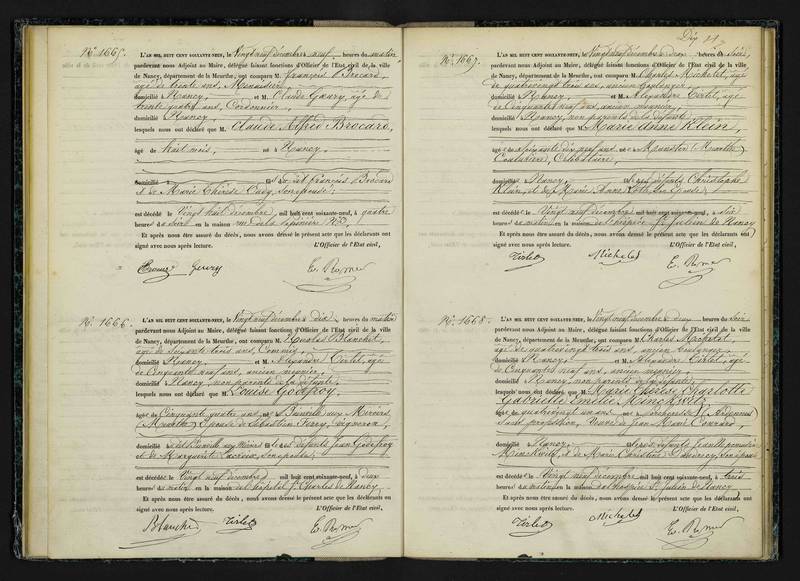 N.º 1665.
L'AN MIL HUIT CENT SOIXANTE-NEUF, le Vingt neuf décembre à neuf heures du matin
pardevant nous Adjoint au Maire, délégué faisant fonctions d'Officier de l'Etat civil de la ville
de Nancy, département de la Meurthe, ont comparu M. françois Brocard,
âgé de trente ans, Menuisier,
domicilié à Nancy, et M. Claude Gœury, âgé de
trente quatre ans, Cordonnier,
domicilié Nancy,
lesquels nous ont déclaré que M. Claude Alfred Brocard,
âgé de huit mois, né à Nancy,
domicilié à françois Brocard
& de Marie Thérèse
est décédé le Vingt huit décembre mil huit cent soixante-neuf, à quatre
heures du soir en la maison rue de la Pépinière
Et après nous être assuré du décès, nous avons dressé le présent acte que les déclarants ont
signé avec nous après lecture. L'Officier de l'Etat civil,
N.º 1666.
L'AN MIL HUIT CENT SOIXANTE-NEUF, le Vingt neuf décembre à dix heures du matin
pardevant nous Adjoint au Maire, délégué faisant fonctions d'Officier de l'Etat civil de la ville
de Nancy, département de la Meurthe, ont comparu M. Nicolas Blanchet,
âgé de soixante trois ans, Commis,
domicilié Nancy, et M. Alexandre Tirlet, âgé
de Cinquante neuf ans, ancien meunier,
domicilié à Nancy, non parents de la défunte,
lesquels nous ont déclaré que M. Louise Godefroy,
âgée de Cinquante quatre ans née à Einville aux
(Meurthe) Epouse de Sébastien Ferry, vigneron,
domicilié à feu Jean Godefroy
et de Marguerite
est décédée le Vingt neuf décembre mil huit cent soixante-neuf, à deux
heures du matin en la maison de l'hôpital St. Charles de Nancy
Et après nous être assuré du décès, nous avons dressé le présent acte que les déclarants ont
signé avec nous après lecture. L'Officier de l'Etat civil,
Blanchet Tirlet
N.º 1667.
L'AN MIL HUIT CENT SOIXANTE-NEUF, le Vingt neuf décembre à deux heures du soir
pardevant nous Adjoint au Maire, délégué faisant fonctions d'Officier de l'Etat civil de la ville
de Nancy, département de la Meurthe, ont comparu M. Charles Michelet, âgé
de quatrevingt trois ans, ancien boulanger,
domicilié à Nancy, et M. Alexandre Tirlet, âgé
de Cinquante neuf ans, ancien meunier,
domicilié Nancy, non parents de la défunte
lesquels nous ont déclaré que M. Marie Anne Klein,
âgée de soixante dix neuf ans née à (Meurthe)
Couturière, Célibataire,
domicilié Nancy, Christophe
Klein, et de Marie Anne
est décédée le Vingt neuf décembre mil huit cent soixante-neuf, à six
heures du matin en la maison de l'hospice St. Julien de Nancy
Et après nous être assuré du décès, nous avons dressé le présent acte que les déclarants ont
signé avec nous après lecture. L'Officier de l'Etat civil,
Tirlet Michelet
N.º 1668.
L'AN MIL HUIT CENT SOIXANTE-NEUF, le Vingt neuf décembre à deux heures du soir
pardevant nous Adjoint au Maire, délégué faisant fonctions d'Officier de l'Etat civil de la ville
de Nancy, département de la Meurthe, ont comparu M. Charles Michelet,
âgé de quatrevingt trois ans, ancien boulanger,
domicilié Nancy, et M. Alexandre Tirlet, âgé
de Cinquante neuf ans, ancien meunier,
domicilié Nancy, non parents de la défunte,
lesquels nous ont déclaré que M. Marie Thérèse Charlotte
Gabrielle Emélie
âgée de quatrevingt un ans née à (Ardennes)
sans profession, Veuve de Jean Marie
domicilié Nancy,
et de Marie Christine
est décédée le Vingt neuf décembre mil huit cent soixante-neuf, à trois
heures du matin en la maison de l'hospice St. Julien de Nancy
Et après nous être assuré du décès, nous avons dressé le présent acte que les déclarants ont
signé avec nous après lecture. L'Officier de l'Etat civil,
Tirlet Michelet